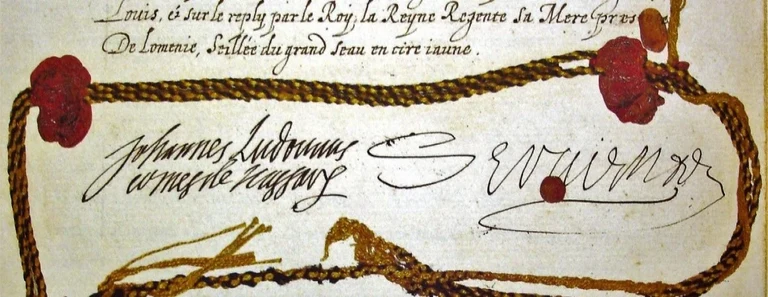 Louis, & sur le reply par le Roy, la Reyne Regente sa Mere presente
De Lomenie, Seillée du grand seau en cire iaune.
Johannes Ludovicus
comes de Nassau Servien